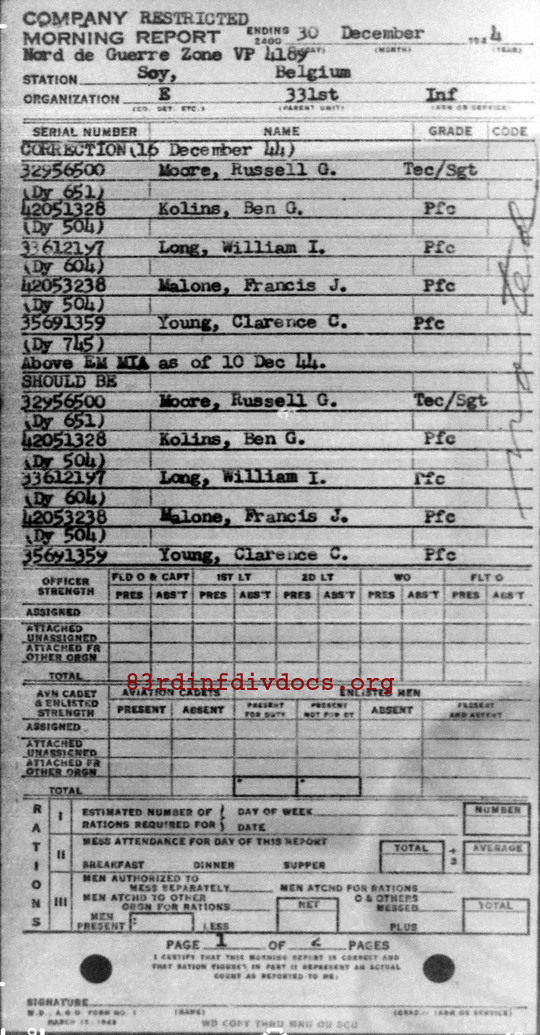 COMPANY RESTRICTED
MORNING REPORT ENDING 2400 30 December 1944
(DAY) (MONTH) (YEAR)
Nord de Guerre Zone VP 4189
STATION Soy, Belgium
ORGANIZATION E 331st Inf
(CO. DET. ETC.) (PARENT UNIT) (ARM OR SERVICE)
SERIAL NUMBER NAME GRADE CODE
CORRECTION(16 December 44)
32956500 Moore, Russell G. Tec/Sgt
(Dy 651)
42051328 Kolins, Ben G. Pfc
(Dy 504)
33612197 Long, William I. Pfc
(Dy 604)
42053238 Malone, Francis J. Pfc
(Dy 504)
35691359 Young, Clarence C. Pfc
(Dy 745)
Above EM MIA as of 10 Dec 44.
SHOULD BE
32956500 Moore, Russell G. Tec/Sgt
(Dy 651)
42051328 Kolins, Ben G. Pfc
(Dy 504)
33612197 Long, William I. Pfc
(Dy 604)
42053238 Malone, Francis J. Pfc
(Dy 504)
35691359 Young, Clarence C. Pfc
OFFICER STRENGTH FLD O & CAPT 1ST LT 2D LT WO FLT O
PRES ABS'T PRES ABS'T PRES ABS'T PRES ABS'T PRES ABS'T
ASSIGNED
ATTACHED UNASSIGNED
ATTACHED FR OTHER ORGN
TOTAL
83rdinfdivdocs.org
AVN CADET & ENLISTED STRENGTH AVIATION CADETS ENLISTED MEN
PRESENT ABSENT PRESENT FOR DUTY PRESENT NOT FOR DY ABSENT PRESENT AND ABSENT
ASSIGNED
ATTACHED UNASSIGNED
ATTACHED FR OTHER ORGN
TOTAL
RATIONS
I ESTIMATED NUMBER OF RATIONS REQUIRED FOR DAY OF WEEK DATE NUMBER
II MESS ATTENDANCE FOR DAY OF THIS REPORT TOTAL ÷ 3 AVERAGE
BREAKFAST DINNER SUPPER
III MEN AUTHORIZED TO MESS SEPARATELY MEN ATCHD FOR RATIONS
MEN ATCHD TO OTHER ORGN FOR RATIONS NET O & OTHERS MESSED TOTAL
MEN PRESENT LESS PLUS
PAGE 1 OF 2 PAGES
I CERTIFY THAT THIS MORNING REPORT IS CORRECT AND
THAT RATION FIGURES IN PART II REPRESENT AN ACTUAL
COUNT AS REPORTED TO ME:
SIGNATURE
W.D., A.G.O. FORM NO. 1 (NAME) (GRADE) (ARM OR SERVICE)
MARCH 15, 1943
WD COPY THRU MRU OR SCU